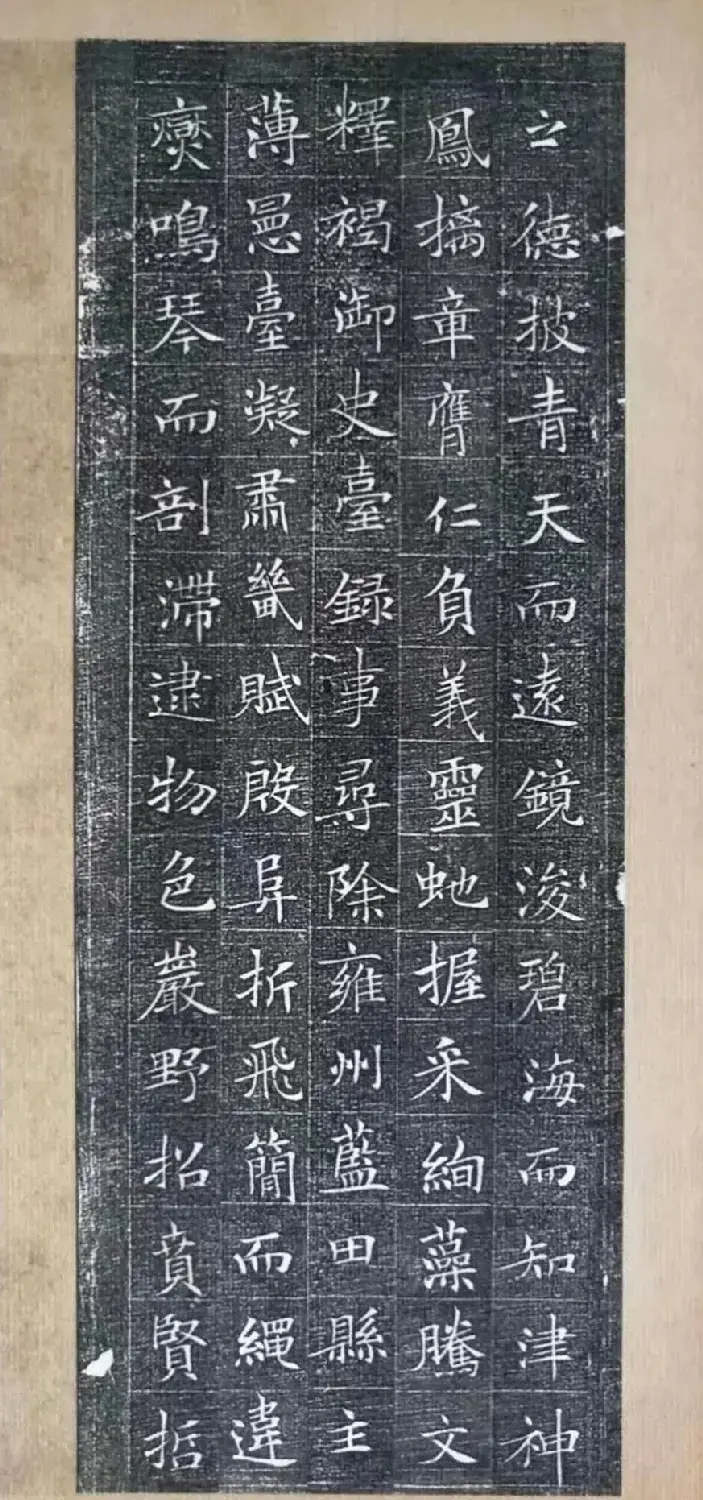 之德披青天而遠鏡浚碧海而知津神
鳳摛章膺仁負義靈虵握采絢藻騰文
釋褐御史臺録事尋除雍州藍田縣主
薄臺凝肅畿賦殷阜折飛簡而繩違
爕鳴琴而剖滯逮物色巖野招賁賢哲